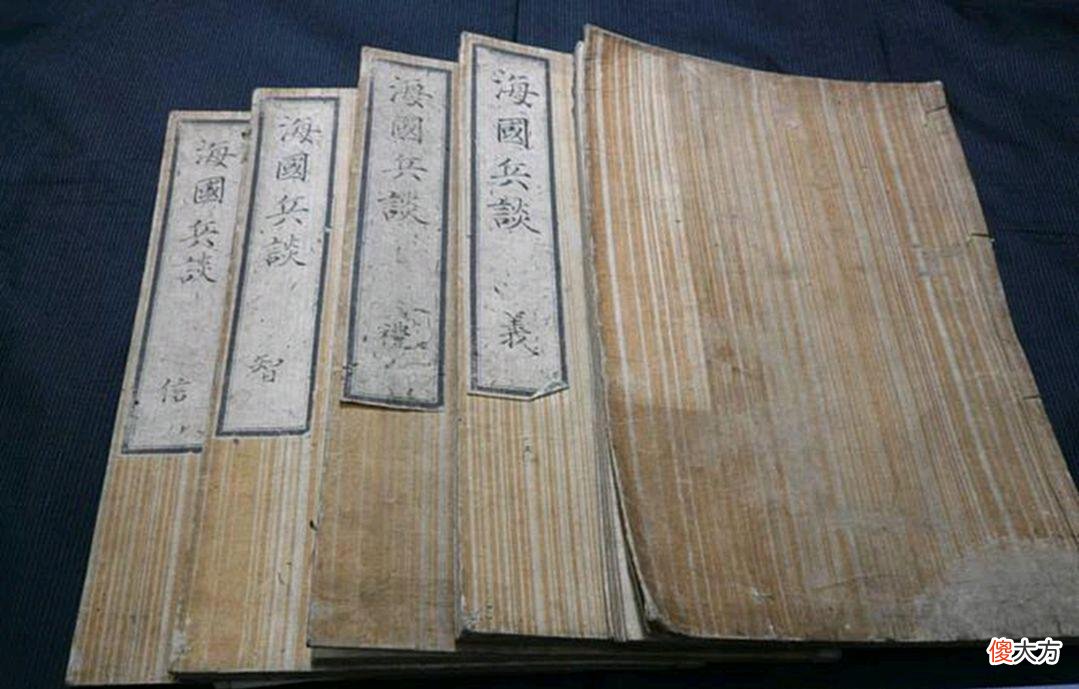 海國兵談 義
海國兵談 禮
海國兵談 智
海國兵談 信
傻大方